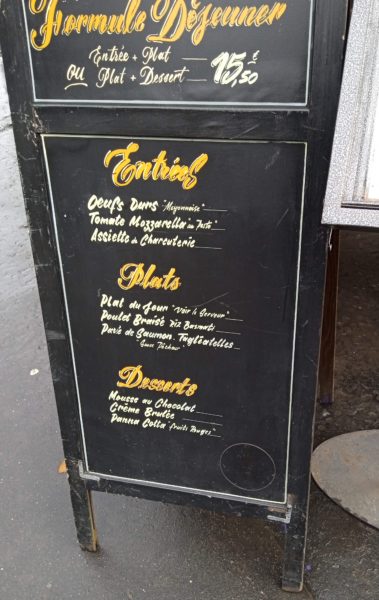 Formule Déjeuner
Entrée + Plat
ou Plat + Dessert 15,50 €
Entrées
Oeufs Durs "Mayonnaise"
Tomate Mozzarella au Pesto
Assiette de Charcuterie
Plats
Plat du Jour "Voir le Serveur"
Poulet Braisé Riz Basmati
Pavé de Saumon Tagliatelles
Desserts
Mousse au Chocolat
Crème Brulée
Panna Cotta "fruits Rouges"